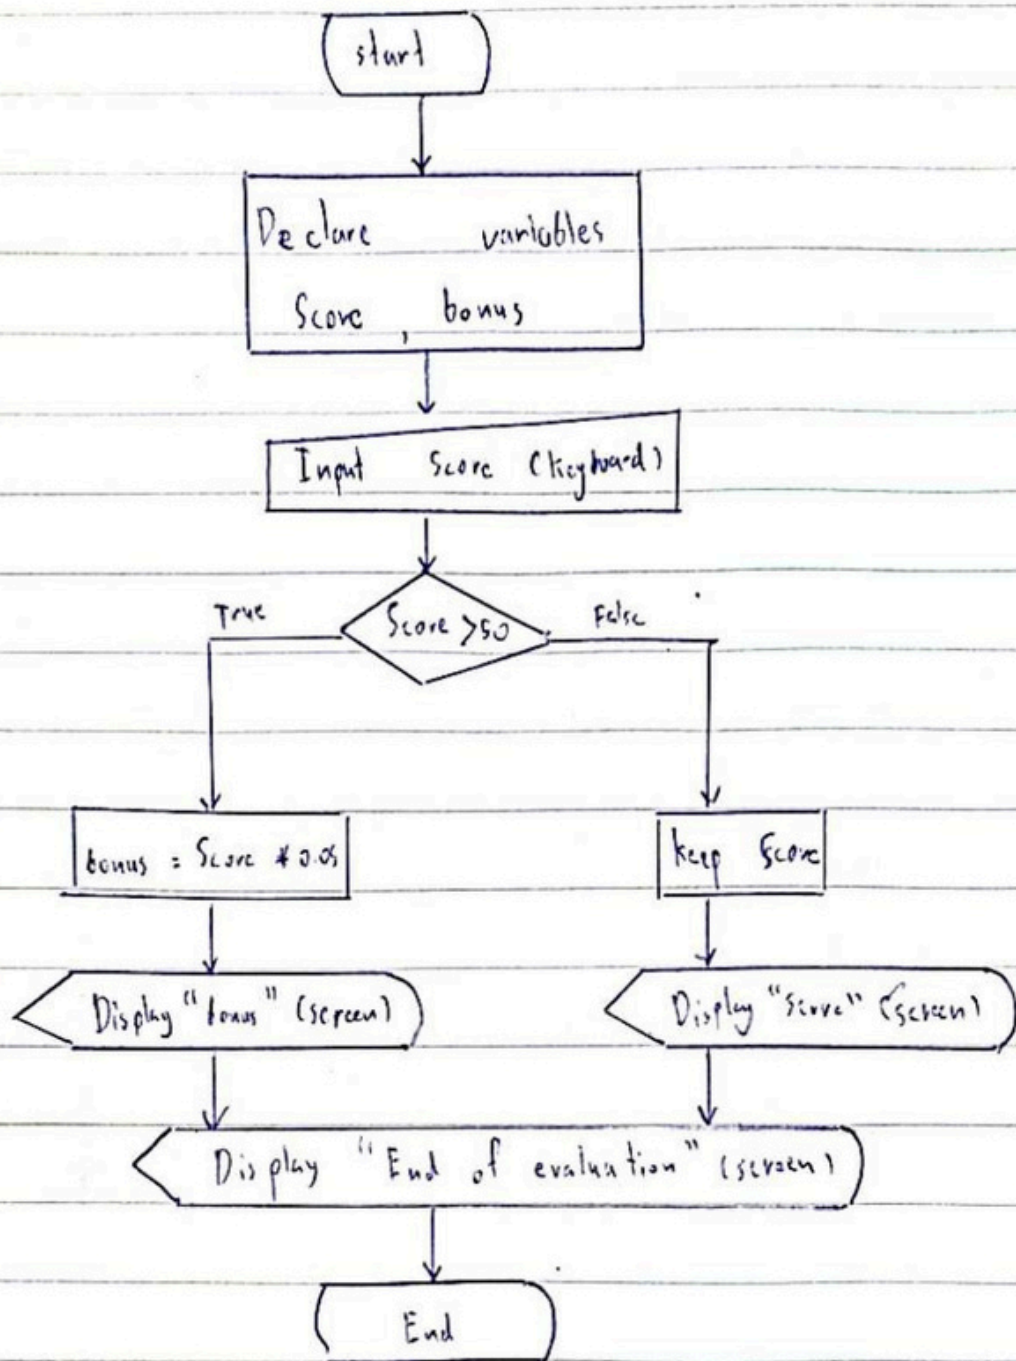 start
Declare variables
Score , bonus
Input Score (keyboard)
Score >50
True
False
bonus = Score * 0.05
keep Score
Display "bonus" (screen)
Display "Score" (screen)
Display "End of evaluation" (screen)
End